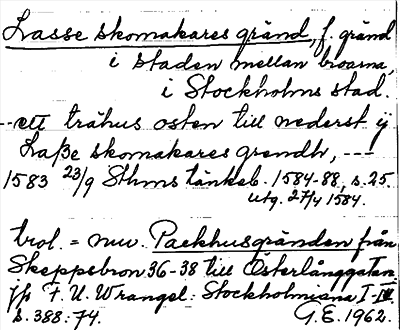 Lasse skomakares gränd, f. gränd
i staden mellan broarna,
i Stockholms stad.
--- ett trähus osten till nederst ÿ
Laße skomakares grendh, ---
1583 23/9 Sthms tänkeb. 1584-88, s. 25.
utg. 27/4 1584.
trol. = nuv. Packhusgränden från
Skeppsbron 36-38 till Österlånggatan
jfr F. U. Wrangel: Stockholmiana I-IV
s. 388: 74.
G. E. 1962.